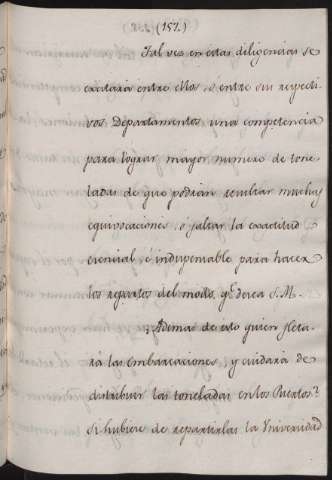 (157.)
Tal vez en estas diligencias se
excitaria entre ellos, ó entre sus respecti-
vos Departamentos una competencia
para lograr mayor numero de tone-
ladas de que podrian resultar muchas
equivocaciones, ó faltar la exactitud
esencial, é indispensable para hacer
los repartos del modo, qe. desea S. M.
Ademas de esto quien fleta-
rá las Embarcaciones, y cuidará de
distribuir las toneladas en los Puertos?
Si hubiere de repartirlas la Universidad